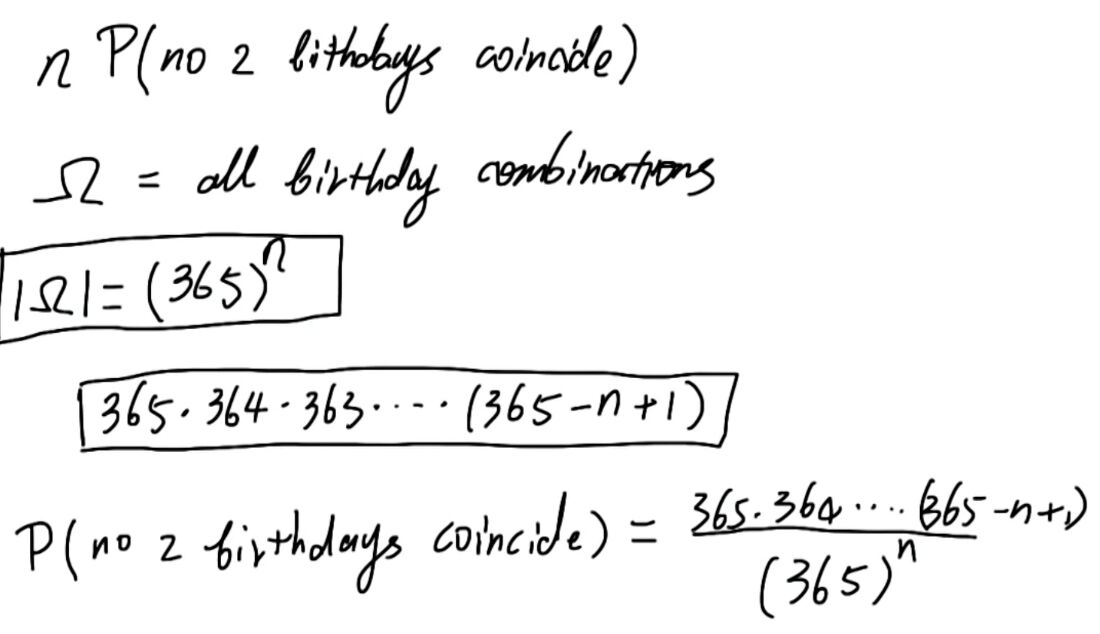 n P(no 2 bithdays coincide)
Ω = all birthday combinations
|Ω| = (365)^n
365 · 364 · 363 · · · · · (365 - n + 1)
P(no 2 birthdays coincide) = 365 · 364 · · · · (365 - n + 1) / (365)^n